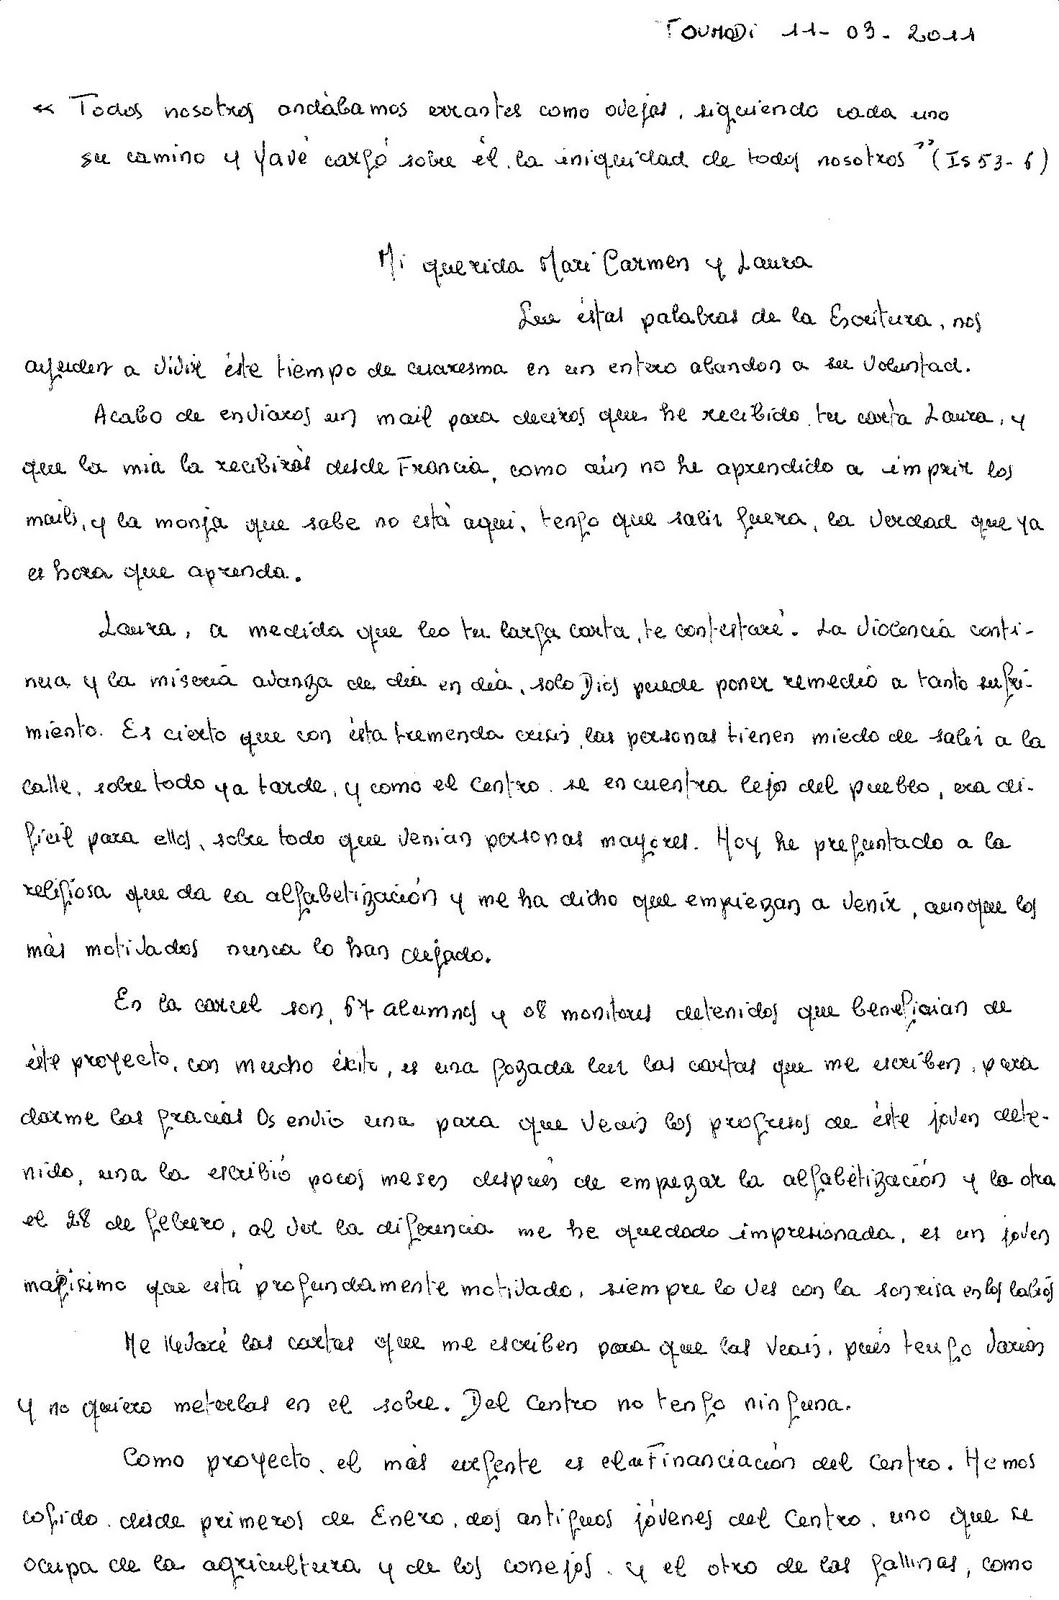 TOUMODI 11-03-2011
<< Todos nosotros andàbamos errantes como ovejas, siguiendo cada uno
su camino y Yavé cargó sobre él la iniquidad de todos nosotros" (Is 53-6)
Mi querida Mari Carmen y Laura
Que éstas palabras de la Escritura, nos
ayuden a vivir éste tiempo de cuaresma en un entero abandon a su voluntad.
Acabo de enviaros un mail para deciros que he recibido tu carta Laura, y
que la mia la recibiràs desde Francia, como aún no he aprendido a imprir los
mails, y la monja que sabe no està aqui, tengo que salir fuera, la verdad que ya
es hora que aprenda.
Laura, a medida que leo tu larga carta, te contestaré. La violencia conti-
nua y la miseria avanza de dia en dia, solo Dios puede poner remedio a tanto sufri-
miento. Es cierto que con ésta tremenda crisis las personas tienen miedo de salir a la
calle, sobre todo ya tarde, y como el Centro se encuentra lejos del pueblo, era di-
ficil para ellos, sobre todo que venian personas mayores. Hoy he preguntado a la
religiosa que da la alfabetización y me ha dicho que empiezan a venir, aunque los
màs motivados nunca lo han dejado.
En la carcel son 67 alumnos y 08 monitores detenidos que benefician de
éste proyecto, con mucho éxito, es una gozada leer las cartas que me escriben, para
darme las gracias Os envio una para que veais los progresos de éste joven dete-
nido, una la escribió pocos meses después de empezar la alfabétización y la otra
el 28 de febrero, al ver la diferencia me he quedado impresionada, es un joven
majisimo que està profundamente motivado, siempre lo ves con la sonrisa en los labios
Me llevaré las cartas que me escriben para que las veais, pues tengo varias
y no quiero meterlas en el sobre. Del Centro no tengo ninguna.
Como proyecto, el màs urgente es el Financiación del Centro. Hemos
cogido desde primeros de Enero, dos antiguos jóvenes del Centro, uno que se
ocupa de la agricultura y de los conejos y el otro de las gallinas, como